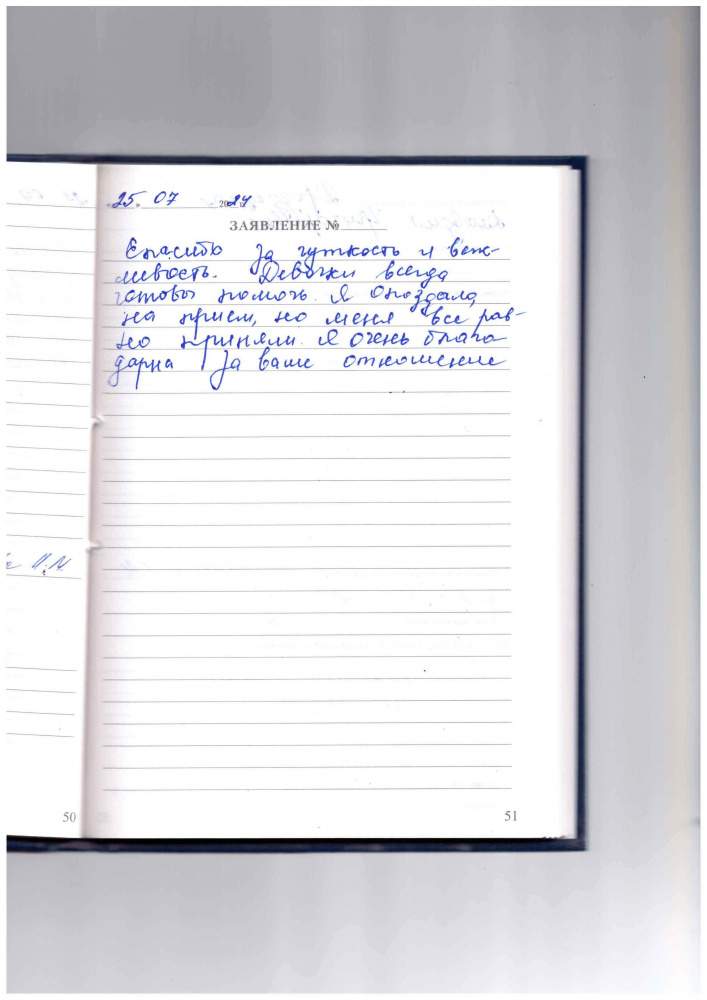 25. 07 2024
ЗАЯВЛЕНИЕ №
Спасибо за чуткость и веж-
ливость. Девочки всегда
готовы помочь. Я опоздала
на прием, но меня все рав-
но приняли. Я очень благо
дарна за ваше отношение
И.И
50
51